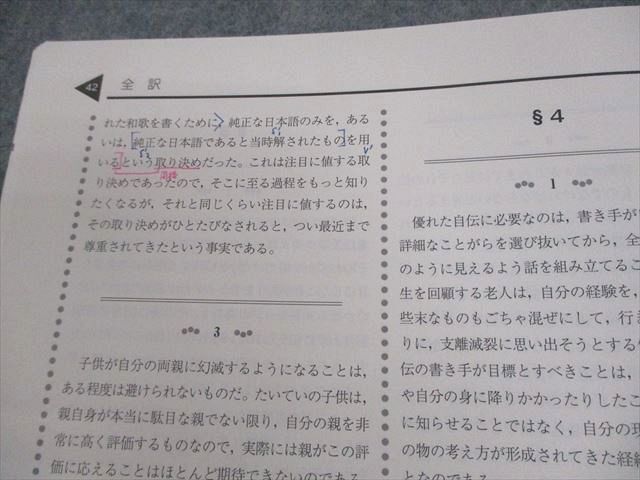 42 全訳
れた和歌を書くために、純正な日本語のみを，ある
いは，純正な日本語であると当時解されたものを用
いるという取り決めだった。これは注目に値する取
り決めであったので，そこに至る過程をもっと知り
たくなるが，それと同じくらい注目に値するのは，
その取り決めがひとたびなされると，つい最近まで
尊重されてきたという事実である。
3
子供が自分の両親に幻滅するようになることは，
ある程度は避けられないものだ。たいていの子供は，
親自身が本当に駄目な親でない限り，自分の親を非
常に高く評価するものなので，実際には親がこの評
価に応えることはほとんど期待できないのである
§4
1
優れた自伝に必要なのは，書き手が
詳細なことがらを選び抜いてから，全
のように見えるよう話を組み立てるこ
生を回顧する老人は，自分の経験を，
些末なものもごちゃ混ぜにして，行き
りに，支離滅裂に思い出そうとする
伝の書き手が目標とすべきことは，
や自分の身に降りかかったりしたこ
に知らせることではなく，自分の現
の物の考え方が形成されてきた経
となのである